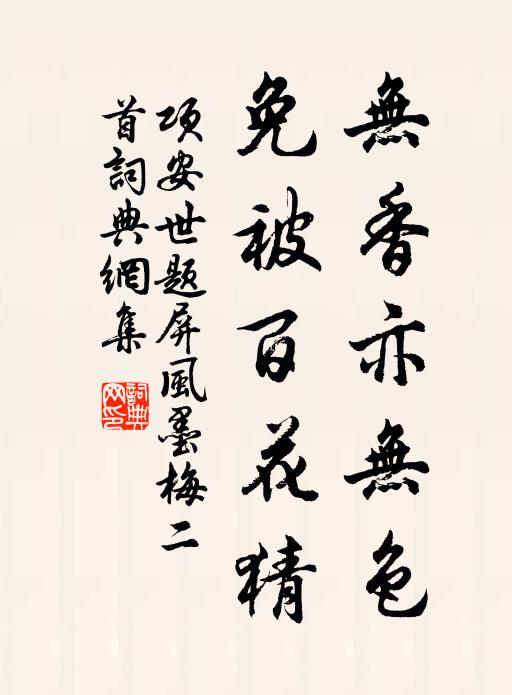 無香亦無色
免被百花猜
項安世題屏風墨梅二
首詞典網集
詞典
网印